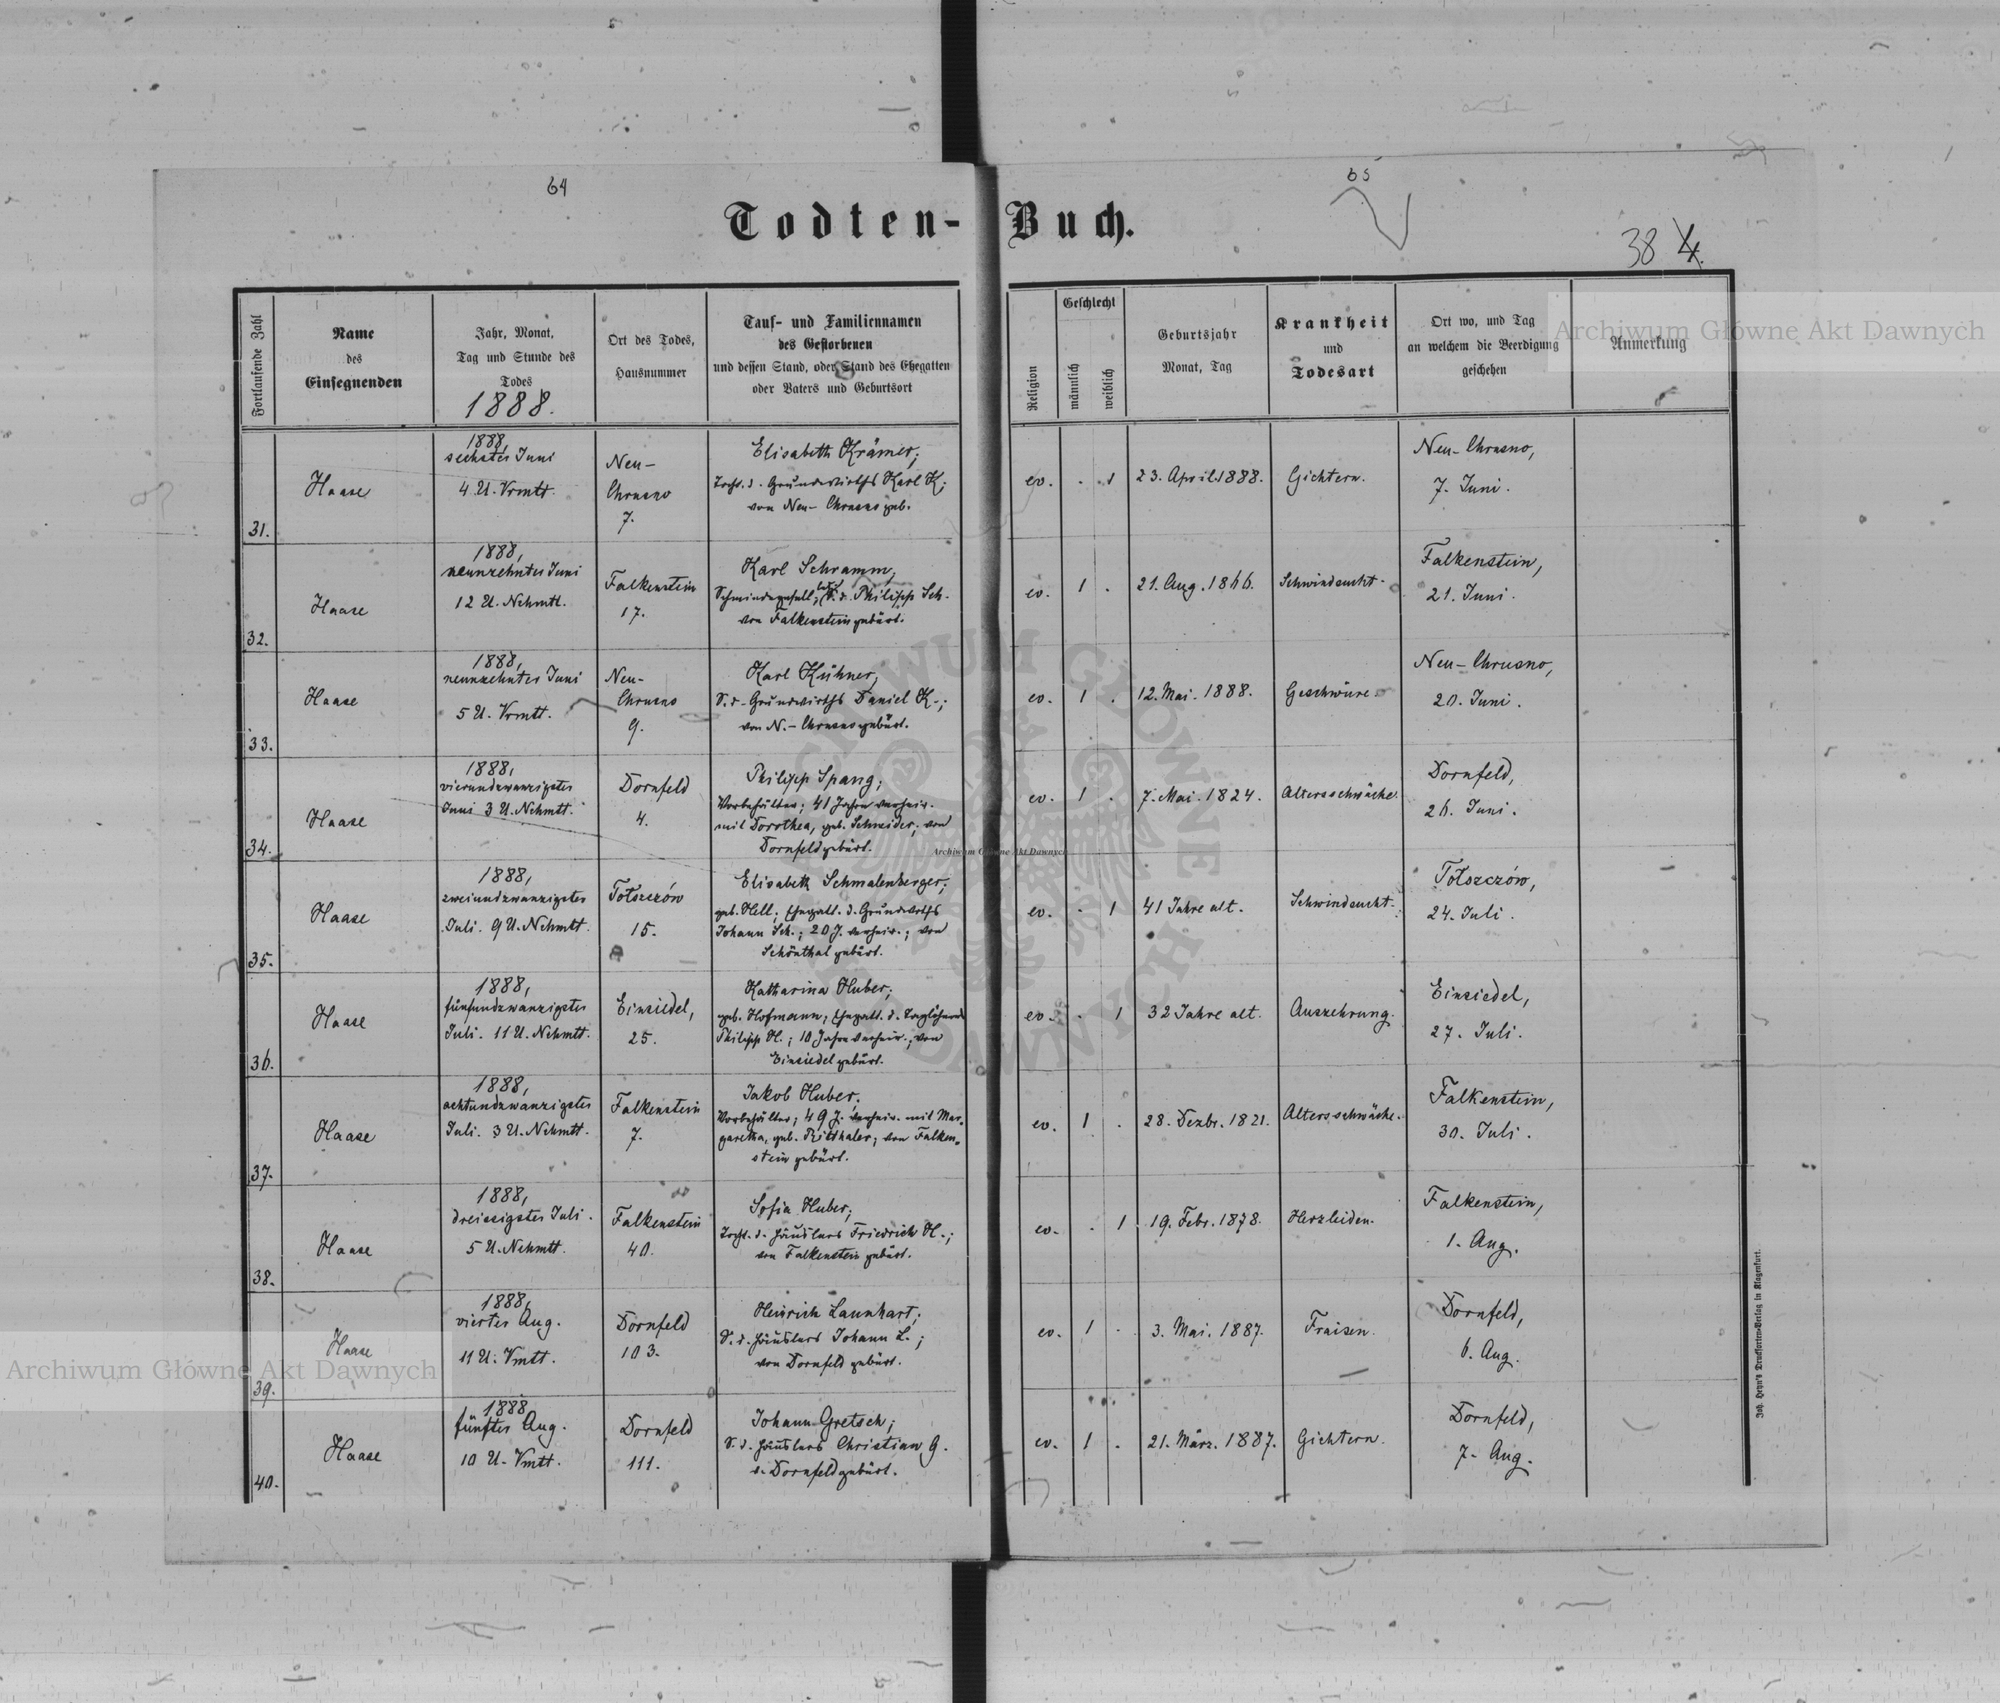 64
65
Todten-Buch.
38 4.
Fortlaufende Zahl
Name
des
Einsegnenden
Jahr, Monat,
Tag und Stunde des
Todes
1888.
Ort des Todes,
Hausnummer
Tauf- und Familiennamen
des Gestorbenen
und dessen Stand, oder Stand des Ehegatten
oder Vaters und Geburtsort
Religion
Geschlecht
männlich
weiblich
Geburtsjahr
Monat, Tag
Krankheit
und
Todesart
Ort wo, und Tag
an welchem die Beerdigung
geschehen
Anmerkung
31.
Haase
1888,
sechster Juni
4 U. Vrmtt.
Neu-
Chrusno
7.
Elisabeth Krämer;
Tocht. d. Grundwirths Karl K.
von Neu-Chrusno geb.
ev. . 1
23. April 1888.
Gichtern.
Neu-Chrusno,
7. Juni.
32.
Haase
1888,
neunzehnter Juni
12 U. Nchmtt.
Falkenstein
17.
Karl Schramm,
Schmiedegesell; led. S. d. Philipp Sch.
von Falkenstein gebürt.
ev. 1 .
21. Aug. 1866.
Schwindsucht.
Falkenstein,
21. Juni.
33.
Haase
1888,
neunzehnter Juni
5 U. Vrmtt.
Neu-
Chrusno
9.
Karl Kühner,
S. d. Grundwirths Daniel K.;
von N.-Chrusno gebürt.
ev. 1 .
12. Mai. 1888.
Geschwüre
Neu-Chrusno,
20. Juni.
34.
Haase
1888,
vierundzwanzigster
Juni 3 U. Nchmtt.
Dornfeld
4.
Philipp Spang;
Vorbehälter; 41 Jahre verheir.
mit Dorothea, geb. Schneider; von
Dornfeld gebürt.
ev. 1 .
7. Mai. 1824.
Altersschwäche.
Dornfeld,
26. Juni.
35.
Haase
1888,
zweiundzwanzigster
Juli. 9 U. Nchmtt.
Tołszczów
15.
Elisabeth Schmalenberger;
geb. Hell; Ehegatt. d. Grundwirths
Johann Sch.; 20 J. verheir.; von
Schönthal gebürt.
ev. . 1
41 Jahre alt.
Schwindsucht.
Tołszczów,
24. Juli.
36.
Haase
1888,
fünfundzwanzigster
Juli. 11 U. Nchmtt.
Einsiedel,
25.
Katharina Huber;
geb. Hofmann; Ehegatt. d. Taglöhners
Philipp H.; 10 Jahre verheir.; von
Einsiedel gebürt.
ev. . 1
32 Jahre alt.
Auszehrung.
Einsiedel,
27. Juli.
37.
Haase
1888,
achtundzwanzigster
Juli. 3 U. Nchmtt.
Falkenstein
7.
Jakob Huber.
Vorbehälter; 49 J. verheir. mit Mar-
garetha, geb. Ritthaler; von Falken-
stein gebürt.
ev. 1 .
28. Dezbr. 1821.
Altersschwäche.
Falkenstein,
30. Juli.
38.
Haase
1888,
dreissigster Juli.
5 U. Nchmtt.
Falkenstein
40.
Sofia Huber;
Tocht. d. Häuslers Friedrich H.;
von Falkenstein gebürt.
ev. . 1
19. Febr. 1878.
Herzleiden.
Falkenstein,
1. Aug.
39.
Haase
1888,
vierter Aug.
11 U. Vmtt.
Dornfeld
103.
Heinrich Launhart;
S. d. Häuslers Johann L.;
von Dornfeld gebürt.
ev. 1 .
3. Mai. 1887.
Fraisen.
Dornfeld,
6. Aug.
40.
Haase
1888
fünfter Aug.
10 U. Vmtt.
Dornfeld
111.
Johann Gretsch;
S. d. Häuslers Christian G.
v. Dornfeld gebürt.
ev. 1 .
21. März. 1887.
Gichtern.
Dornfeld,
7. Aug.
Joh. Heyn's Drucksorten-Verlag in Klagenfurt.
Archiwum Główne Akt Dawnych
Archiwum Główne Akt Dawnych
Archiwum Główne Akt Dawnych
ARCHIWUM GŁÓWNE AKT DAWNYCH